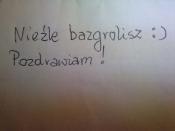 Nieźle bazgrolisz :)
Pozdrawiam!